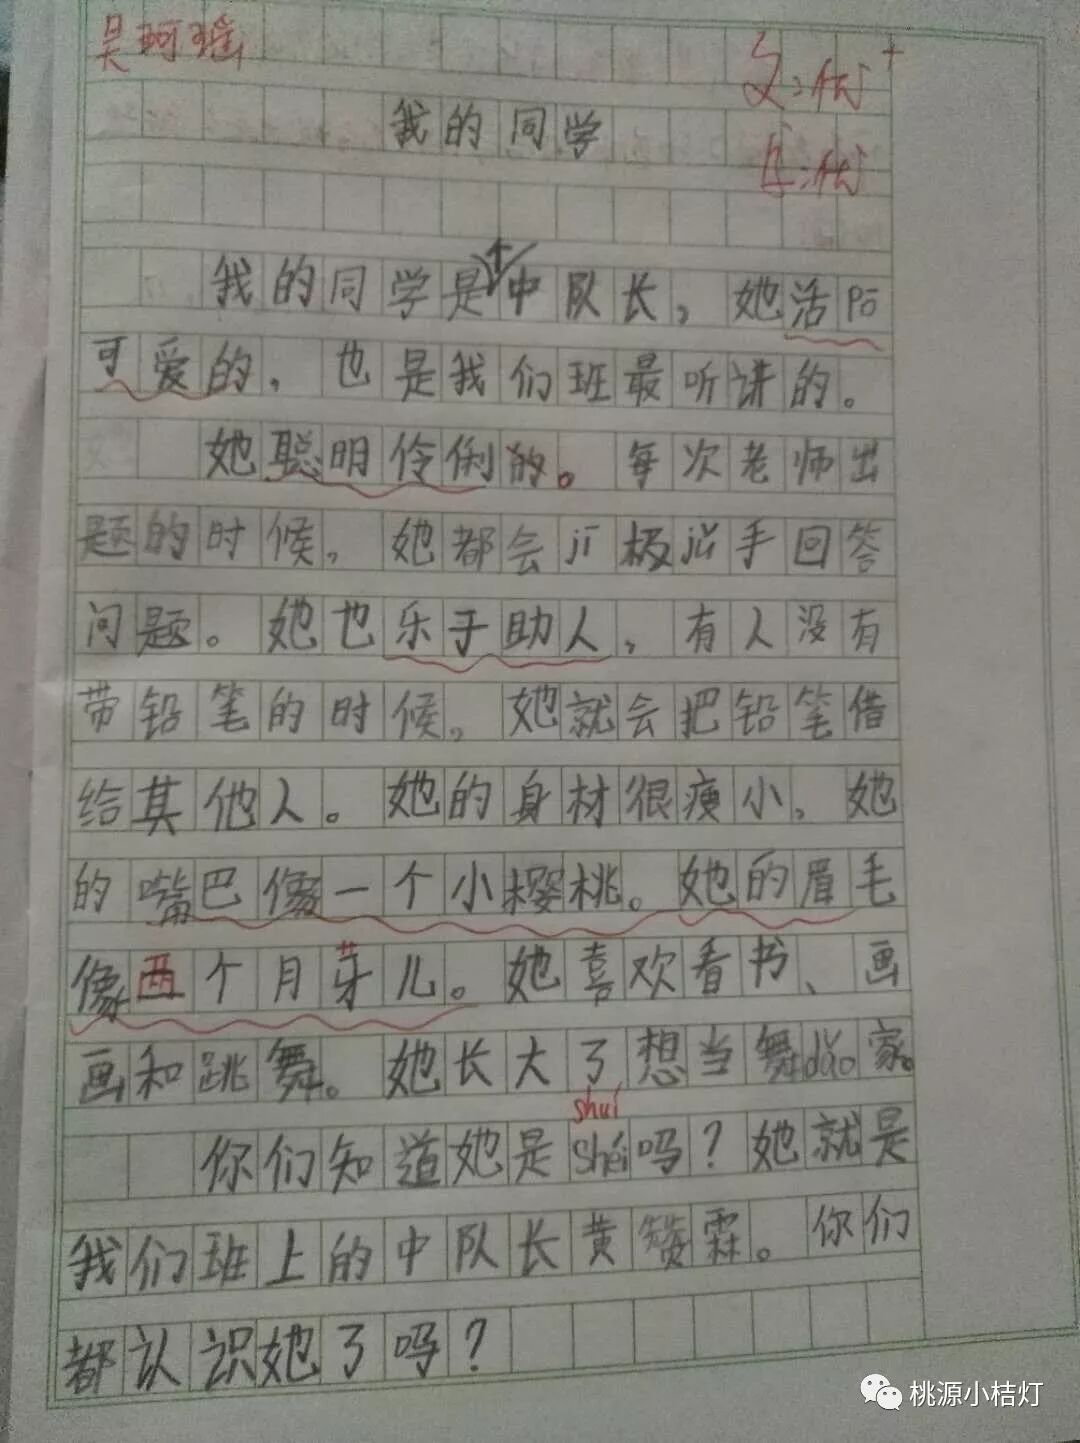 吴珂瑶
文:优+
我的同学
字:优
我的同学是中队长，她活pō
可爱的，也是我们班最听讲的。
她聪明伶俐的。每次老师出
题的时候，她都会jī极jǔ手回答
问题。她也乐于助人，有人没有
带铅笔的时候，她就会把铅笔借
给其他人。她的身材很瘦小，她
的嘴巴像一个小樱桃。她的眉毛
像两个月芽儿。她喜欢看书、画
画和跳舞。她长大了想当舞dǎo家。
shuí
你们知道她是shéi吗？她就是
我们班上的中队长黄赟霖。你们
都认识她了吗？
桃源小桔灯